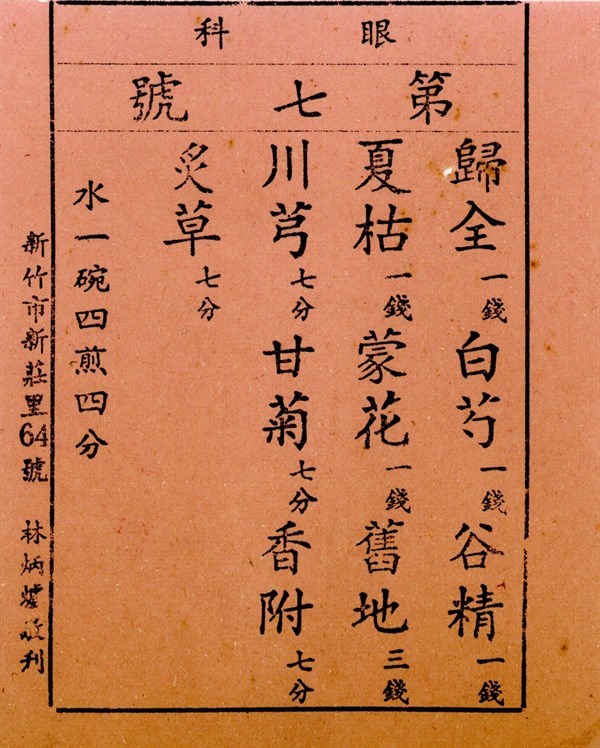 眼科
第七號
歸全一錢 白芍一錢 谷精一錢
夏枯一錢 蒙花一錢 舊地三錢
川芎七分 甘菊七分 香附七分
炙草七分
水一碗四煎四分
新竹市新莊里64號 林炳 刊